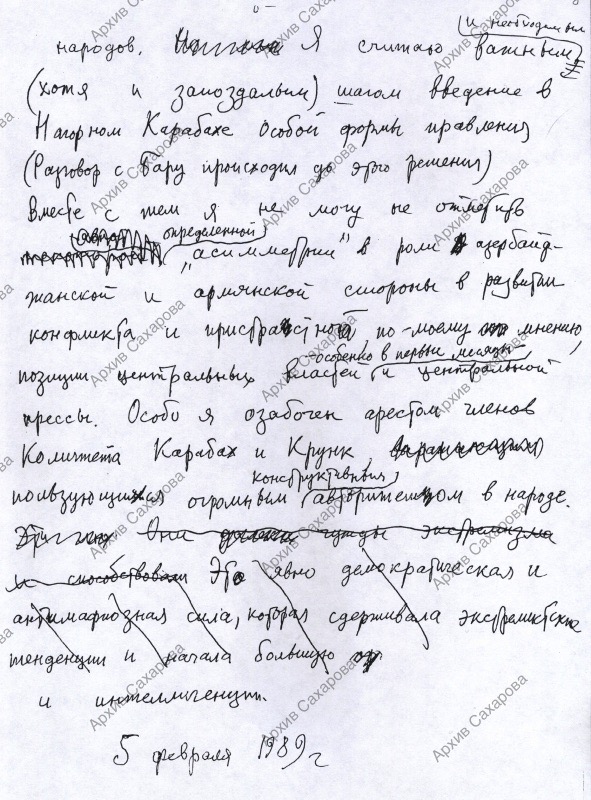 и необходимым
народов. Я считаю важным
(хотя и запоздалым) шагом введение в
Нагорном Карабахе особой формы правления
(Разговор с Бару происходил до этого решения)
Вместе с тем я не могу не отметить
определенной
"асимметрии" в роли азербайд-
жанской и армянской стороны в развитии
конфликта и пристрастной, по-моему мнению,
особенно в первые месяцы
позиции центральных властей и центральной
прессы. Особо я озабочен арестом членов
Комитета Карабах и Крунк,
конструктивным
пользующихся огромным авторитетом в народе.
Они чужды экстремизма
и способствовали Это явно демократическая и
антимафиозная сила, которая сдерживала экстремистские
тенденции и начала большую
и интеллигенции.
5 февраля 1989 г
Архив Сахарова